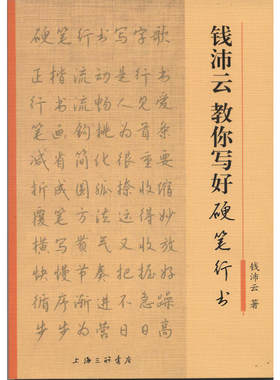 钱沛云 教你写好硬笔行书
钱沛云 著
硬笔行书写字歌
正楷流动是行书
行书流畅人见爱
笔画钩挑为首条
减省简化很重要
折成圆弧捺收缩
覆笔方法运得妙
横写贯气又收放
快慢节奏把握好
循序渐进不急躁
步步为营日日高
上海三联书店